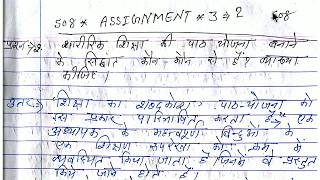 508 * ASSIGNMENT * 3 → 2 508
प्रश्न→2 शारीरिक शिक्षा की पाठ योजना बनाने
के सिद्धांत कौन कौन से हैं? व्याख्या
कीजिए।
उत्तर→ शिक्षा का शब्दकोश पाठ-योजना को
इस प्रकार परिभाषित करता है "एक
अध्यापक के महत्वपूर्ण बिन्दुओं के
एक शिक्षण रूपरेखा को क्रम में
व्यवस्थित किया जाता है जिनमें वे प्रस्तुत
किये जाने होते हैं।